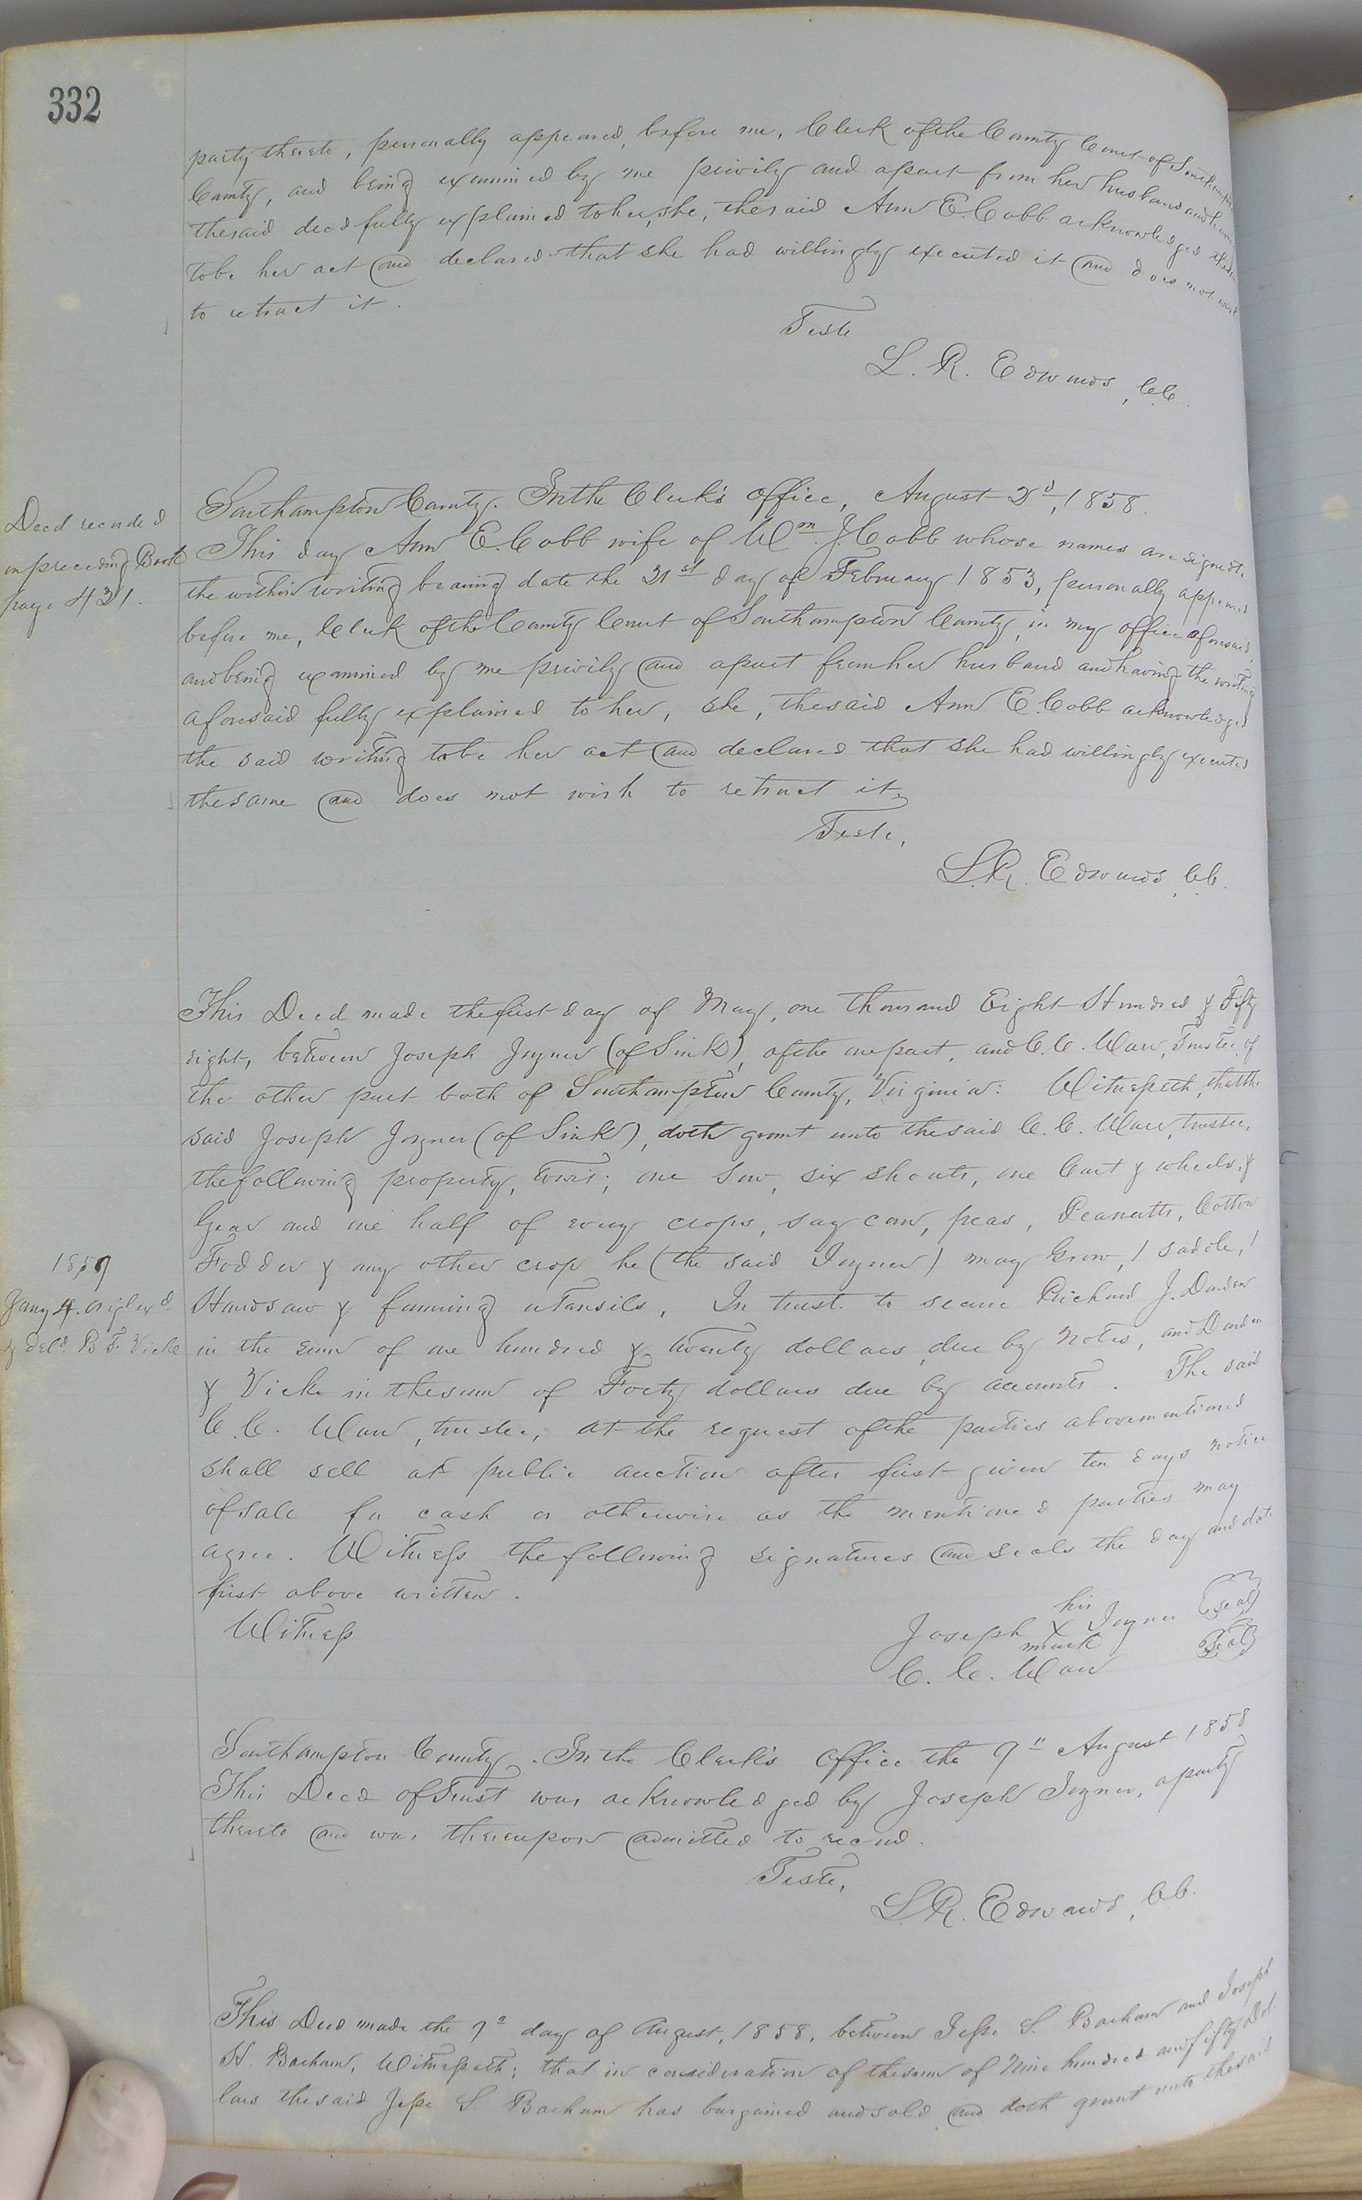 332
party thereto, personally appeared, before me, Clerk of the County Court of Southampton
County, and being examined by me privily and apart from her husband and having
the said deed fully explained to her, she, the said Ann E. Cobb acknowledged the
to be her act and declared that she had willingly executed it and does not wish
to retract it.
Teste
L. R. Edwards, CC.
Deed recorded
in preceding Book
page 431.
Southampton County. In the Clerk's office, August 2d, 1858.
This day Ann E. Cobb wife of Wm. J Cobb whose names are signed to
the within writing bearing date the 21st day of February 1853, personally appeared
before me, Clerk of the County Court of Southampton County, in my office aforesaid,
and being examined by me privily and apart from her husband and having the writing
aforesaid fully explained to her, she, the said Ann E. Cobb acknowledged
the said writing to be her act and declared that she had willingly executed
the same and does not wish to retract it.
Teste,
L. R. Edwards, CC.
This Deed made the first day of May, one thousand Eight Hundred & Fifty
eight, between Joseph Joyner (of Sink), of the one part, and C. C. Warr, Trustee, of
the other part both of Southampton County, Virginia: Witnesseth, that the
said Joseph Joyner (of Sink), doth grant unto the said C. C. Warr, trustee,
the following property, towit; one Sow, six shoats, one Cart & wheels, &
Gear and one half of every crops, say corn, peas, Peanutts, Cotton
Fodder & any other crop he (the said Joyner) may Grow, 1 saddle, 1
Handsaw & farming utansils, In trust to secure Richard J. Darden
in the sum of one hundred & twenty dollars, due by Notes, and Darden
& Vick in the sum of Forty dollars due by accounts. The said
C. C. Warr, trustee, at the request of the parties abovementioned
shall sell at public auction after first given ten days notice
of sale for cash or otherwise as the mentioned parties may
agree. Witness the following signatures and seals the day and date
first above written.
1859
Jany 4. origl exd.
& Deld. B. F. Vick
Witness
Joseph his X mark Joyner Seal
C. C. Warr Seal
Southampton County. In the Clerk's Office the 9" August 1858
This Deed of Trust was acknowledged by Joseph Joyner, a party
thereto and was thereupon admitted to record.
Teste,
L. R. Edwards, CC.
This Deed made the 9d day of August, 1858, between Jesse S. Barham and Joseph
H. Barham, Witnesseth; that in consideration of the sum of Nine hundred and fifty Dol
lars the said Jesse S Barham has bargained and sold and doth grant unto the said